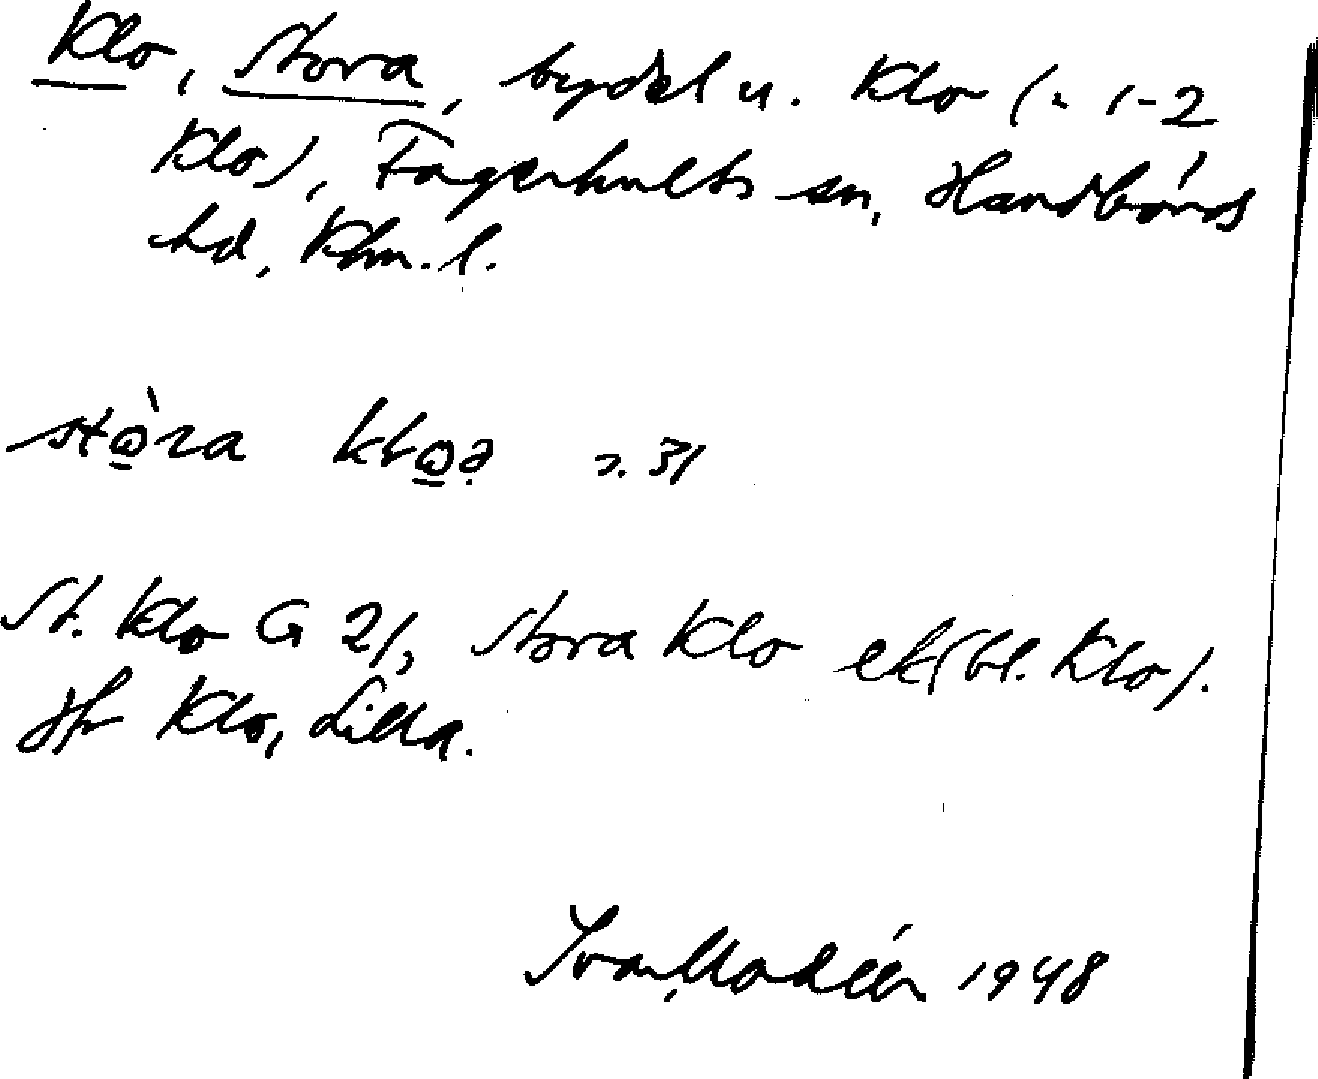 Klo, Stora, bydel u. Klo (= 1-2
Klo), Fagerhults sn, Handbörds
hd, Klm. l.
stòra kloə s. 31
St. Klo G 21, Stora Klo ek (bl. Klo).
Jfr Klo, Lilla.
Ivar Modéer 1948